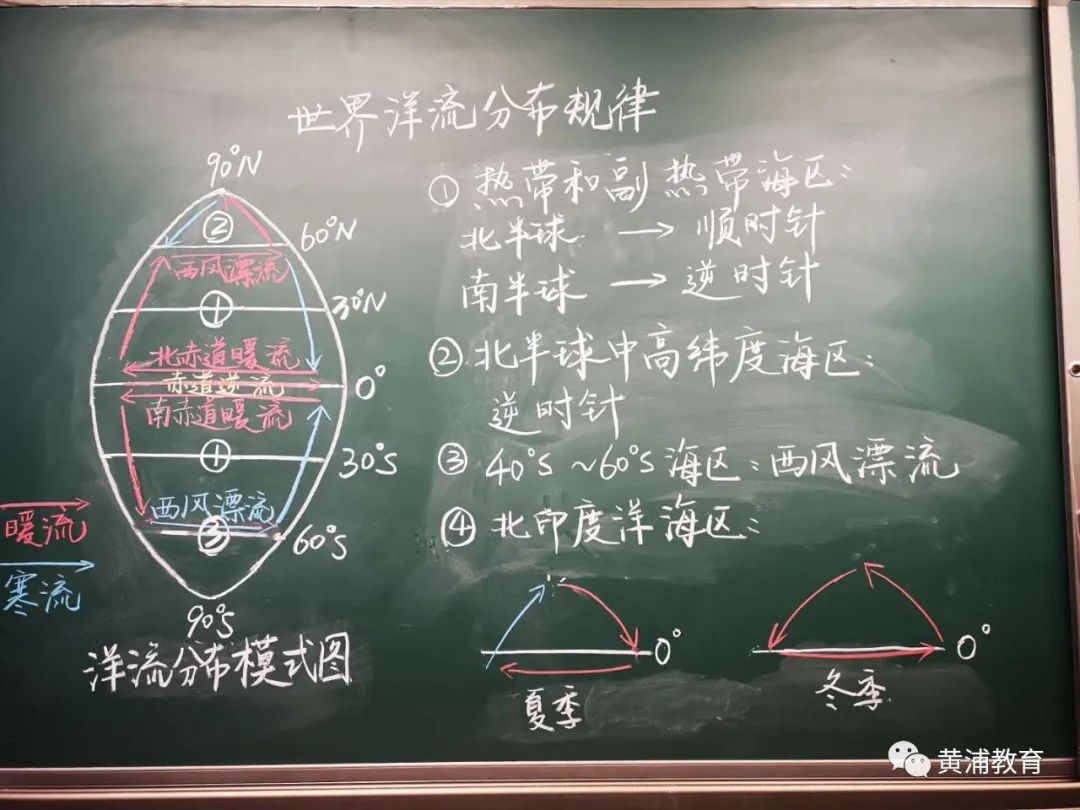 世界洋流分布规律
90°N
②
60°N
西风漂流
①
30°N
北赤道暖流
赤道逆流
0°
南赤道暖流
①
30°S
西风漂流
③
60°S
90°S
暖流
寒流
洋流分布模式图
①热带和副热带海区:
北半球 → 顺时针
南半球 → 逆时针
②北半球中高纬度海区:
逆时针
③ 40°S ~60°S 海区:西风漂流
④ 北印度洋海区:
0°
夏季
0°
冬季
黄浦教育